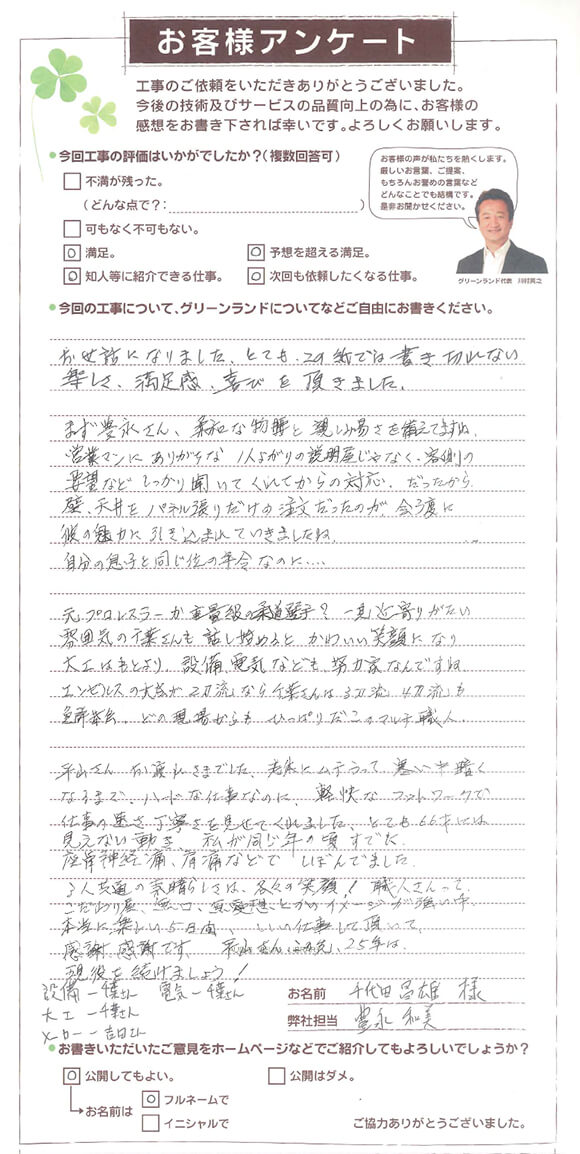 お客様アンケート
工事のご依頼をいただきありがとうございました。
今後の技術及びサービスの品質向上の為に、お客様の
感想をお書き下されば幸いです。よろしくお願いします。
今回工事の評価はいかがでしたか?(複数回答可)
不満が残った。
(どんな点で?: )
可もなく不可もない。
満足。
予想を超える満足。
知人等に紹介できる仕事。
次回も依頼したくなる仕事。
お客様の声が私たちを熱くします。
厳しいお言葉、ご提案、
もちろんお誉めの言葉など
どんなことでも結構です。
是非お聞かせください。
グリーンランド代表 川村真之
今回の工事について、グリーンランドについてなどご自由にお書きください。
お世話になりました、とても、この紙では書き切れない
楽しさ、満足感、喜びを頂きました。
まず豊永さん、柔和な物腰と親しみ易さを備えてますね、
営業マンにありがちな 1人よがりの説明屋じゃなく、客側の
要望など しっかり聞いてくれてからの対応、だったから
壁、天井をパネル張りだけの注文だったのが 会う度に
彼の魅力に引き込まれていきましたね、
自分の息子と同じ位の年令なのに....
元プロレスラーか重量級の柔道選手? 一見近寄りがたい
雰囲気の千葉さんも 話し始めると かわいい笑顔になり
大工はもとより、設備、電気なども、努力家なんですね
エンゼルスの大谷が 2刀流なら 千葉さんは 3刀流 4刀流も
免許皆伝、どの現場からも ひっぱりだこのマルチ職人.
平山さん お疲れさまでした、老体にムチうって 寒い中 暗く
なるまで、ハードな仕事なのに、軽快なフットワークで
仕事の速さ、丁寧さを見せてくれました、とても66才には
見えない動き、私が同じ年の頃すでに
座骨神経痛、肩痛などで しぼんでました.
3人共通の素晴らしさは、各々の笑顔! 職人さんって、
こだわり屋、無口、無愛想、とかのイメージが強い中
本当に楽しい5日間、いい仕事して頂いて、
感謝 感謝です、平山さん、25年は、
現役を続けましょう!
設備ー千葉さん 電気ー千葉さん
大工ー千葉さん
お名前 千代田昌雄 様
弊社担当 豊永 和美
お書きいただいたご意見をホームページなどでご紹介してもよろしいでしょうか?
公開してもよい。
公開はダメ。
お名前は
フルネームで
イニシャルで
ご協力ありがとうございました。